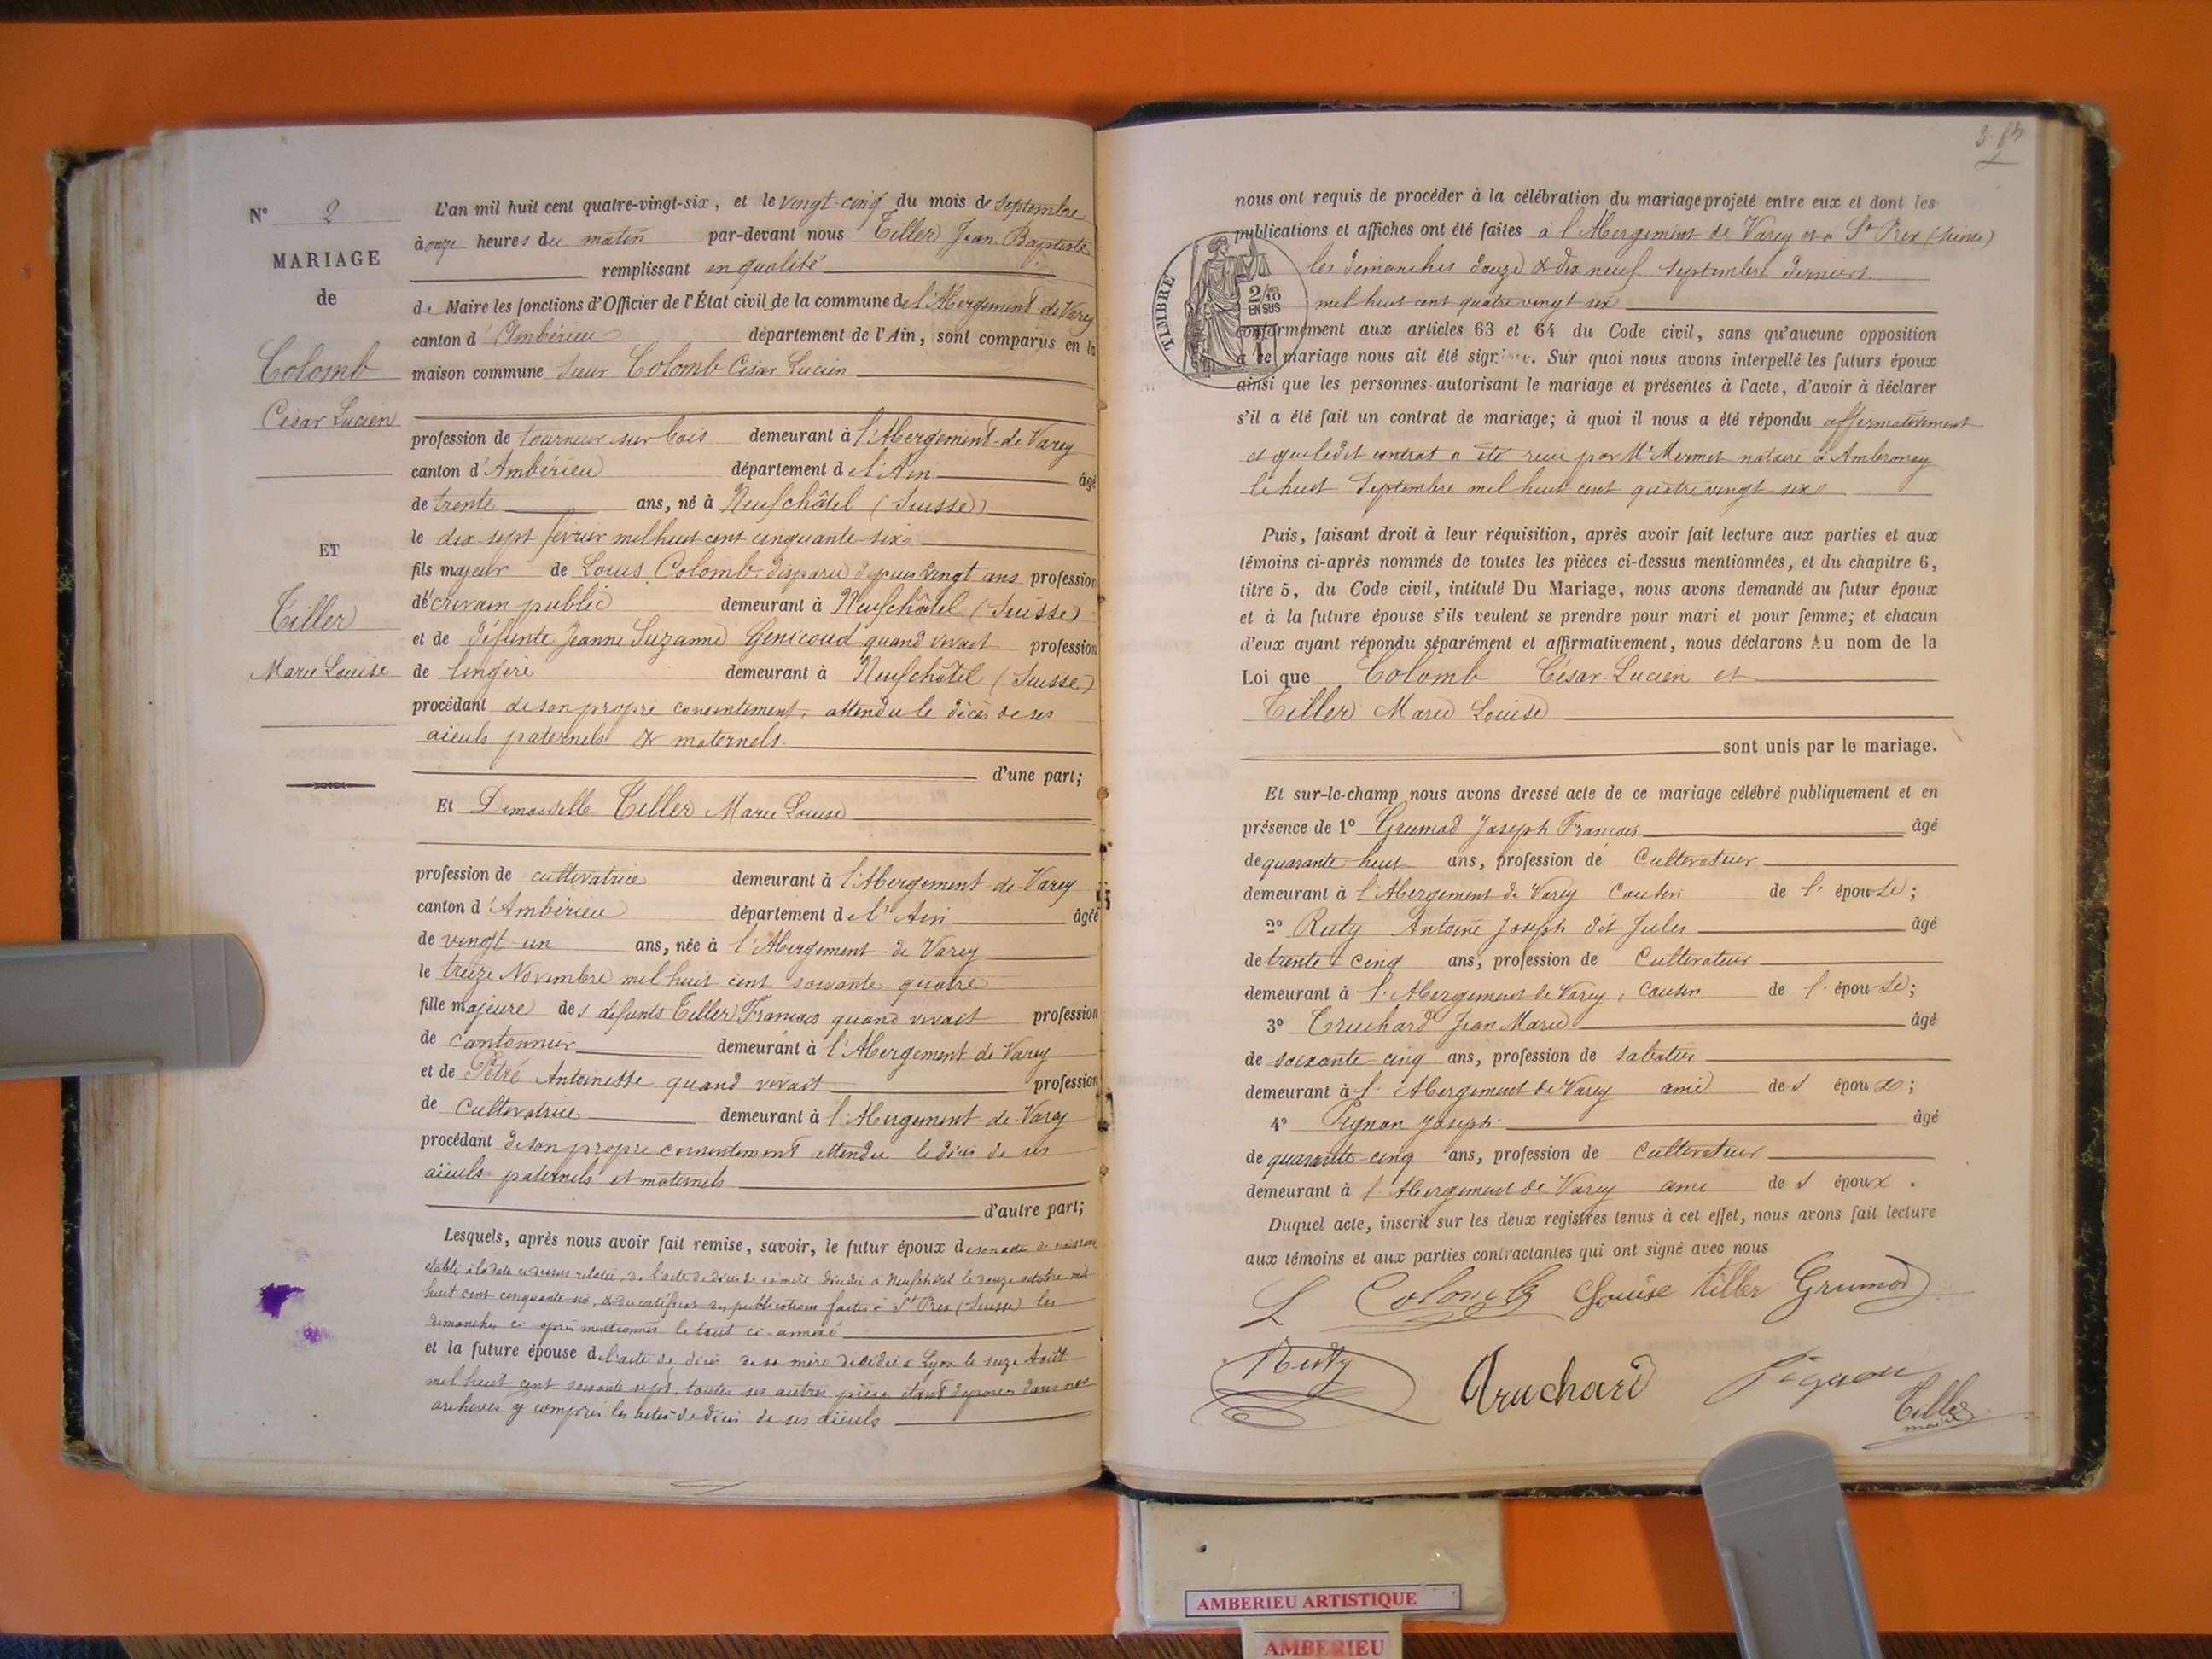 N° 2
MARIAGE
de
Colomb
César Lucien
ET
Tiller
Marie Louise
L'an mil huit cent quatre-vingt-six, et le vingt-cinq du mois de Septembre
à onze heures du matin par-devant nous Tiller Jean Baptiste
remplissant en qualité
de Maire les fonctions d'Officier de l'État civil de la commune de l'Abergement-de-Varey
canton d'Ambérieu département de l'Ain, sont comparus en la
maison commune Sieur Colomb César Lucien
profession de tourneur sur bois demeurant à l'Abergement-de-Varey
canton d'Ambérieu département de l'Ain âgé
de trente ans, né à Neufchâtel (Suisse)
le dix sept février mil huit cent cinquante-six
fils majeur de Louis Colomb disparu depuis vingt ans profession
d'écrivain public demeurant à Neufchâtel (Suisse)
et de défunte Jeanne Suzanne Genicoud quand vivait profession
de lingère demeurant à Neufchâtel (Suisse)
procédant de son propre consentement, attendu le décès de ses
aïeuls paternels & maternels.
d'une part;
Et Demoiselle Tiller Marie Louise
profession de cultivatrice demeurant à l'Abergement-de-Varey
canton d'Ambérieu département de l'Ain âgée
de vingt-un ans, née à l'Abergement-de-Varey
le treize Novembre mil huit cent soixante quatre
fille majeure des défunts Tiller François quand vivait profession
de cantonnier demeurant à l'Abergement de Varey
et de Pétré Antoinette quand vivait profession
de cultivatrice demeurant à l'Abergement-de-Varey
procédant de son propre consentement attendu le décès de ses
aïeuls paternels et maternels
d'autre part;
Lesquels, après nous avoir fait remise, savoir, le futur époux de son acte de naissance
établi à la date ci-dessus relatée, de l'acte de décès de sa mère décédée à Neufchâtel le douze octobre mil
huit cent cinquante six, & du certificat des publications faites à St Prex (Suisse) les
dimanches ci après mentionnés le tout ci-annexé
et la future épouse de l'acte de décès de sa mère décédée à Lyon le seize Août
mil huit cent soixante sept, toutes ses autres pièces étant déposées dans nos
archives y compris les actes de décès de ses aïeuls
nous ont requis de procéder à la célébration du mariage projeté entre eux et dont les
publications et affiches ont été faites à l'Abergement de Varey et à St Prex (Suisse)
les dimanches douze & dix neuf Septembre derniers
mil huit cent quatre vingt six
TIMBRE
2/10
EN SUS
conformément aux articles 63 et 64 du Code civil, sans qu'aucune opposition
à ce mariage nous ait été signifiée. Sur quoi nous avons interpellé les futurs époux
ainsi que les personnes autorisant le mariage et présentes à l'acte, d'avoir à déclarer
s'il a été fait un contrat de mariage; à quoi il nous a été répondu affirmativement
et que ledit contrat a été reçu par Me Mermet notaire à Ambronay
le huit Septembre mil huit cent quatre vingt-six
Puis, faisant droit à leur réquisition, après avoir fait lecture aux parties et aux
témoins ci-après nommés de toutes les pièces ci-dessus mentionnées, et du chapitre 6,
titre 5, du Code civil, intitulé Du Mariage, nous avons demandé au futur époux
et à la future épouse s'ils veulent se prendre pour mari et pour femme; et chacun
d'eux ayant répondu séparément et affirmativement, nous déclarons Au nom de la
Loi que Colomb César-Lucien et
Tiller Marie Louise
sont unis par le mariage.
Et sur-le-champ nous avons dressé acte de ce mariage célébré publiquement et en
présence de 1° Grumod Joseph François âgé
de quarante-huit ans, profession de Cultivateur
demeurant à l'Abergement de Varey Cousin de l'épouse;
2° Ruty Antoine Joseph dit Jules âgé
de trente-cinq ans, profession de Cultivateur
demeurant à l'Abergement de Varey, Cousin de l'épouse;
3° Truchard Jean Marie âgé
de soixante-cinq ans, profession de sabotier
demeurant à l'Abergement de Varey ami des époux;
4° Pignon Joseph âgé
de quarante-cinq ans, profession de Cultivateur
demeurant à l'Abergement de Varey ami des époux.
Duquel acte, inscrit sur les deux registres tenus à cet effet, nous avons fait lecture
aux témoins et aux parties contractantes qui ont signé avec nous
L Colomb Louise tiller Grumod
Ruty Truchard Pignon Tiller
maire
AMBERIEU ARTISTIQUE
AMBERIEU